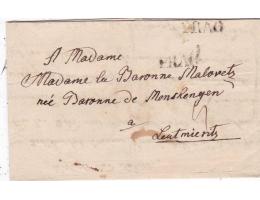 PRAG
PRAG
A Madame
Madame la Baronne Malovetz
neé Baronne de Monskengen
a
Leutmeritz